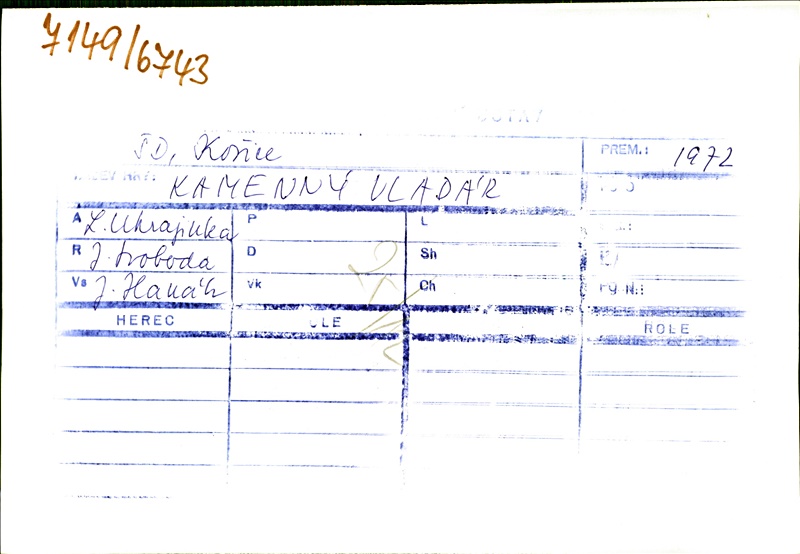 7149/6743
ŠD, Košice PREM.: 1972
KAMENNÝ VLADÁR
A L. Ukrajinka P L
R J. Svoboda D Sh
Vs J. Hanák Vk Ch
HEREC ROLE